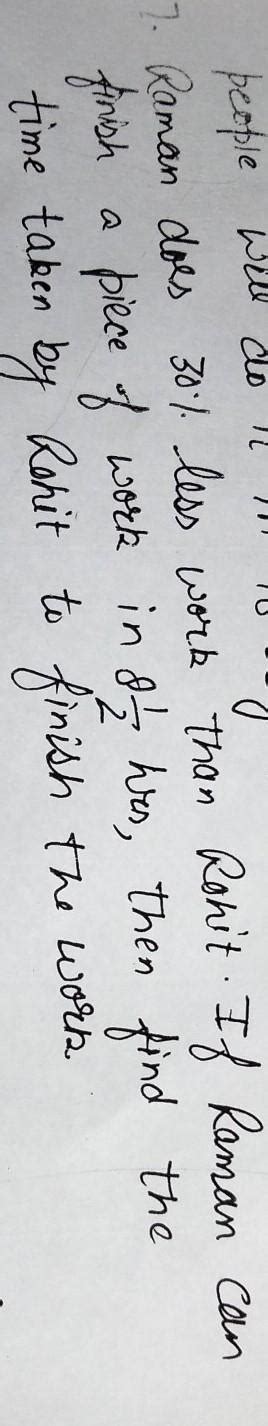 people will do it in
7. Raman does 30% less work than Rohit. If Raman can
finish a piece of work in 8 1/2 hrs, then find the
time taken by Rohit to finish the work